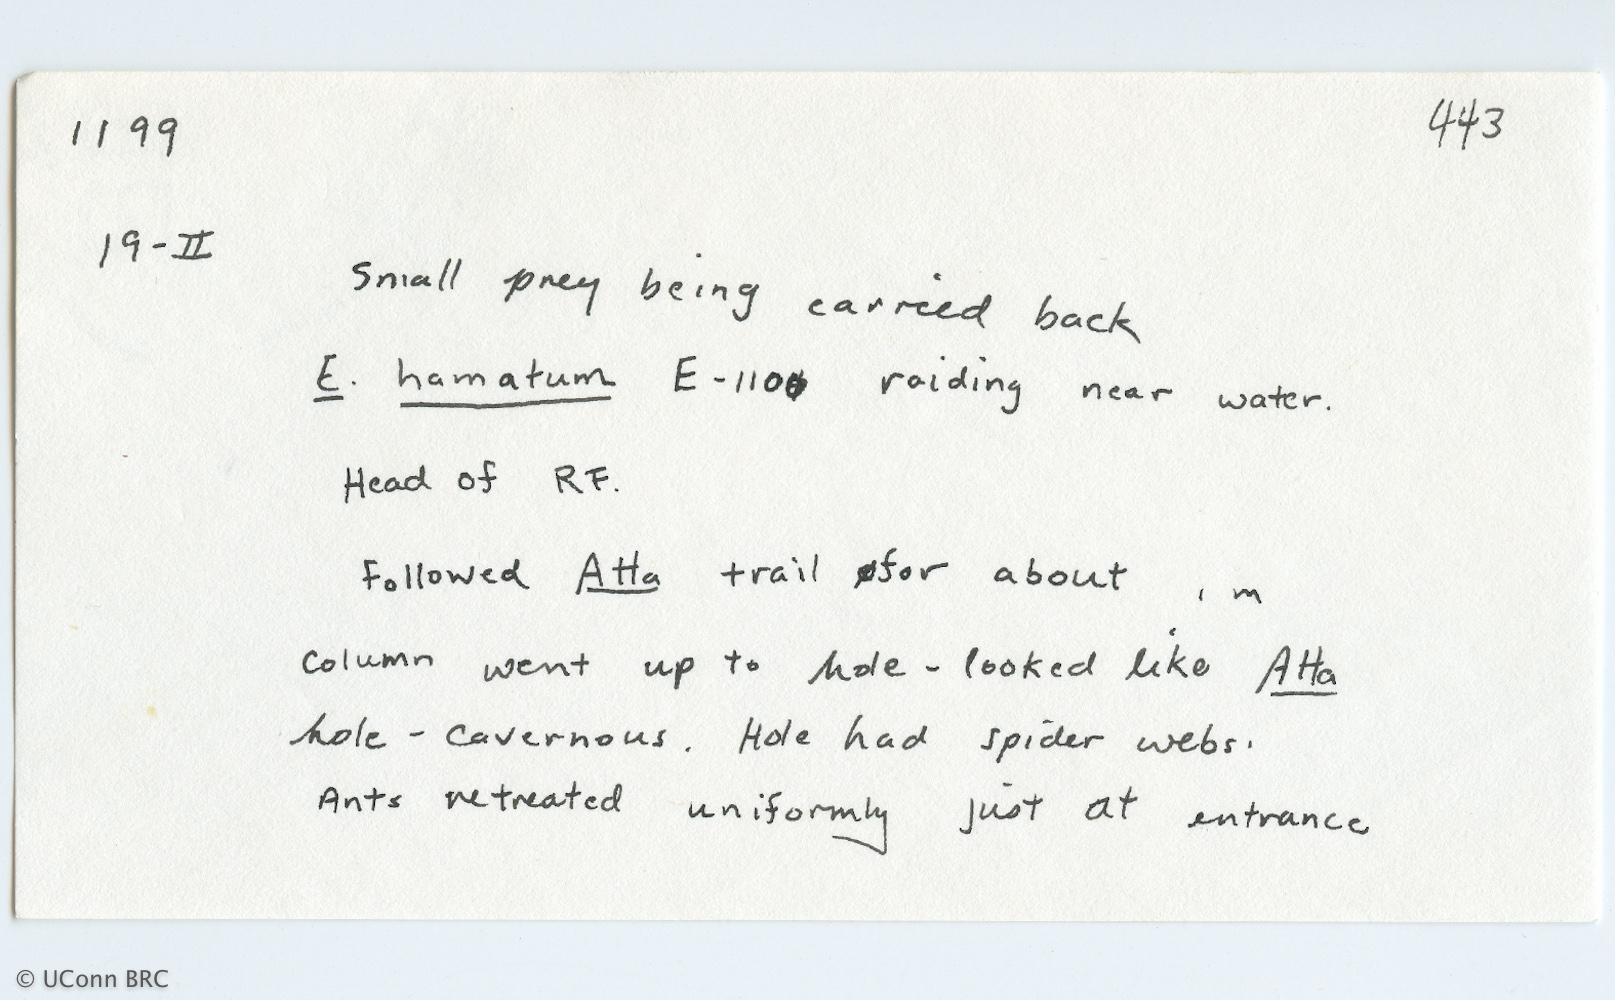 1199 443
19-II
Small prey being carried back
E. hamatum E-1100 raiding near water.
Head of RF.
Followed Atta trail for about 1 m
column went up to hole - looked like Atta
hole - cavernous. Hole had spider webs.
Ants retreated uniformly just at entrance
© UConn BRC